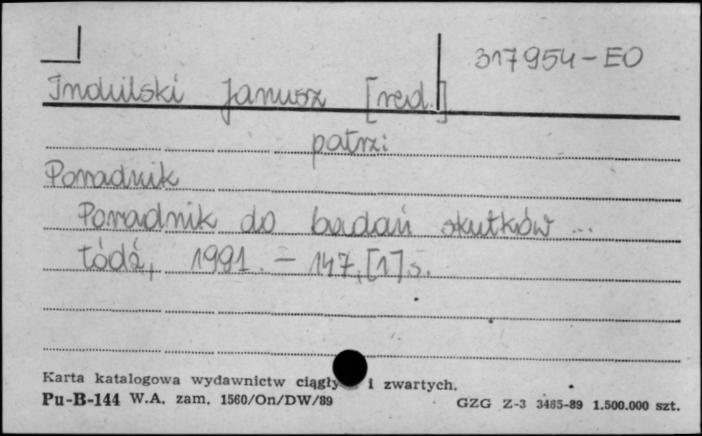 317954-EO
Indulski Janusz [red.]
patrz:
Poradnik
Poradnik do badań skutków ...
Łódź, 1991. – 147,[1]s.
Karta katalogowa wydawnictw ciągły i zwartych.
Pu-B-144 W.A. zam. 1560/On/DW/89
GZG Z-3 3465-89 1.500.000 szt.